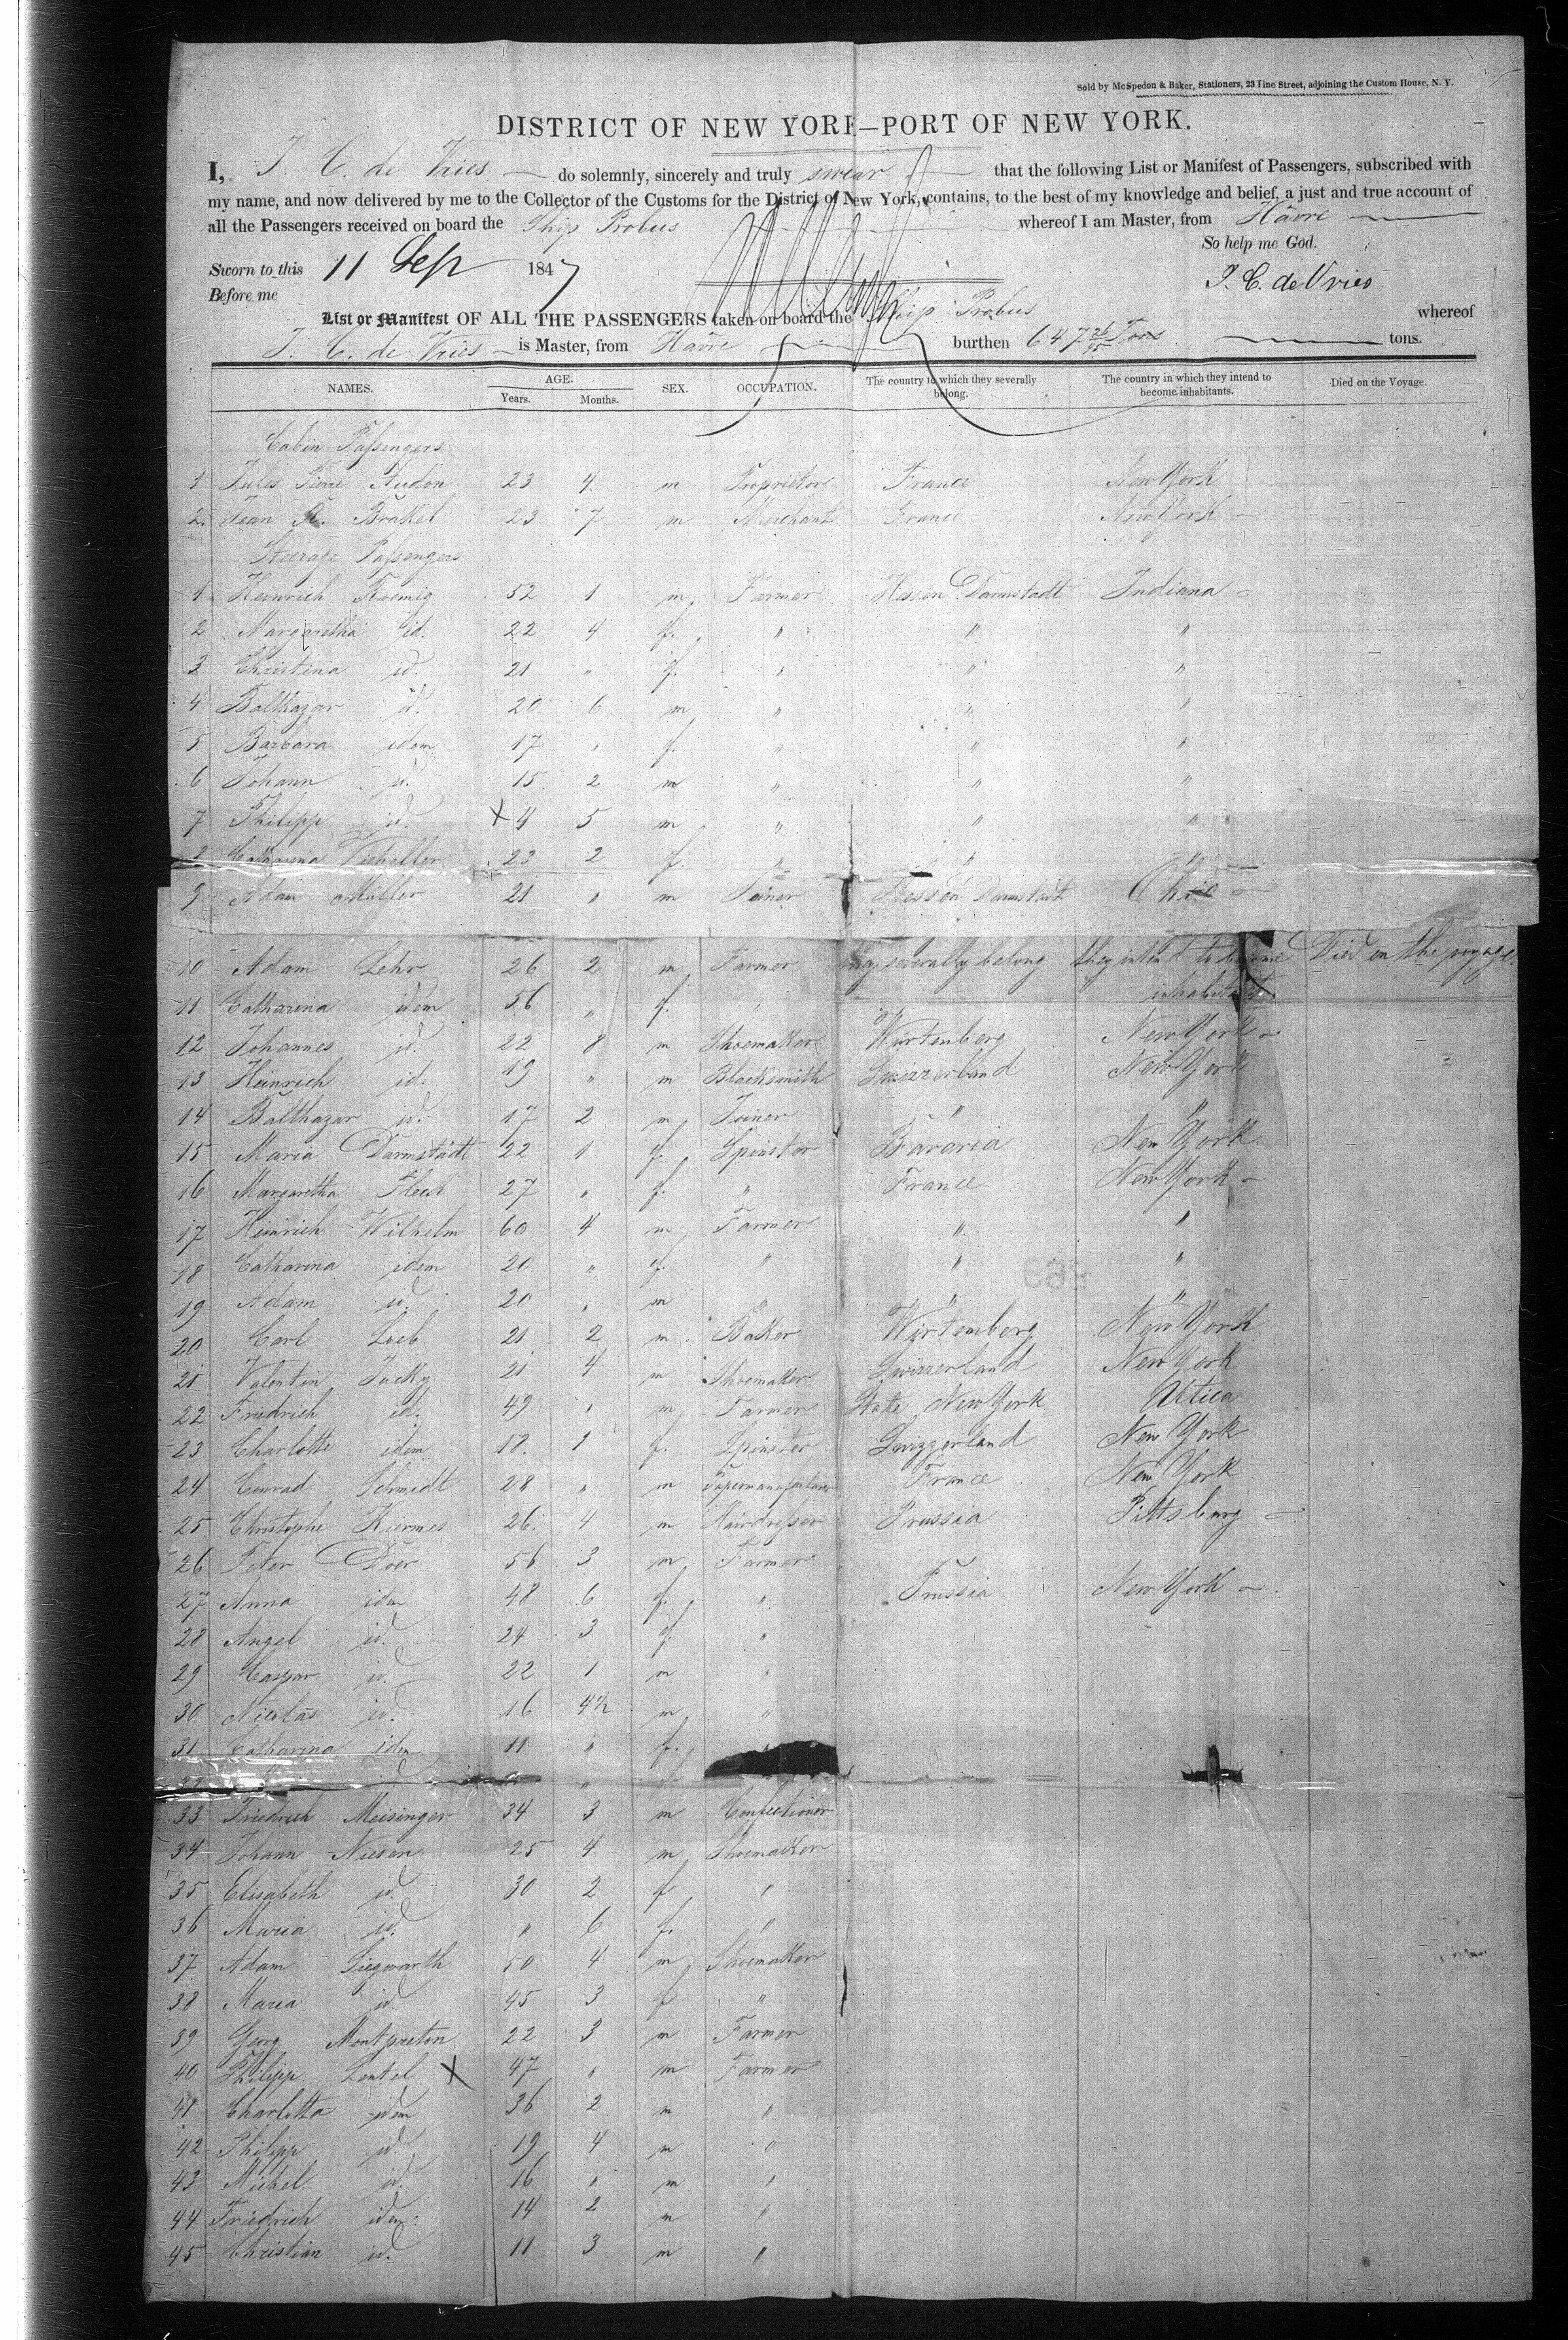 Sold by McSpedon & Baker, Stationers, 23 Pine Street, adjoining the Custom House, N. Y.
DISTRICT OF NEW YORK—PORT OF NEW YORK.
I, J. C. de Vries do solemnly, sincerely and truly swear that the following List or Manifest of Passengers, subscribed with
my name, and now delivered by me to the Collector of the Customs for the District of New York, contains, to the best of my knowledge and belief, a just and true account of
all the Passengers received on board the Ship Probus whereof I am Master, from Hâvre
So help me God.
Sworn to this 11 Sep 1847
J. C. de Vries
Before me
List or Manifest OF ALL THE PASSENGERS taken on board the Ship Probus whereof
J. C. de Vries is Master, from Havre burthen 647 26/95 Tons tons.
NAMES. AGE. Years. Months. SEX. OCCUPATION. The country to which they severally belong. The country in which they intend to become inhabitants. Died on the Voyage.
Cabin Passengers
1 Jules Pierre Audon 23 4 m Proprietor France New York
2. Jean R. Brakel 23 7 m Merchant France New York
Steerage Passengers
1 Heinrich Koenig 52 1 m Farmer Hessen Darmstadt Indiana
2 Margaretha id. 22 4 f. " " "
3 Christina id. 21 " f. " " "
4 Balthazar id. 20 6 m " " "
5 Barbara idem 17 " f. " " "
6 Johann id. 15 2 m " " "
7 Philipp id. X 4 5 m " " "
8 Catharina 23 2 f. " " "
9 Adam Müller 21 " m Joiner Hessen Darmstadt Ohio
10 Adam Lehr 26 2 m Farmer they severally belong they intend to become Died on the voyage.
inhabitants
11 Catharina idem 56 " f. "
12 Johannes id. 22 8 m Shoemaker Würtenberg New York
13 Heinrich id. 19 " m Blacksmith Swizzerland New York
14 Balthazar id. 17 2 m Joiner " "
15 Maria Darmstädt 22 1 f. Spinster Bavaria New York
16 Margaretha 27 " f. " France New York
17 Heinrich Wilhelm 60 4 m Farmer " "
18 Catharina idem 20 " f. " " "
19 Adam id. 20 " m " " "
20 Carl Loeb 21 2 m Baker Würtemberg New York
21 Valentin Jacky 21 4 m Shoemaker Swizzerland New York
22 Friedrich id. 49 " m Farmer State New York Attica
23 Charlotte idem 18. 1 f. Spinster Swizzerland New York
24 Conrad Schmidt 28 " m Papermanufacturer France New York
25 Christophe Kiermes 26. 4 m Hairdresser Prussia Pittsburg
26 Peter Doer 56 3 m Farmer
27 Anna idem 48 6 f. " Prussia New York
28 Angel id. 24 3 f. "
29 Caspar id. 22 1 m "
30 Nicolas id. 16 4½ m "
31 Catharina idem 11 " f.
33 Friedrich Meisinger 34 3 m Confectioner
34 Johann Niesen 25 4 m Shoemaker
35 Elisabeth id. 30 2 f "
36 Maria id. " 6 f. "
37 Adam Siegwarth 50 4 m Shoemaker
38 Maria id. 45 3 f "
39 Georg Montpreton 22 3 m Farmer
40 Philipp Lentel X 47 " m Farmer
41 Charlotta idem 36 2 m "
42 Philipp id. 19 4 m "
43 Michel id. 16 " m "
44 Friedrich idem. 14 2 m "
45 Christian id. 11 3 m "